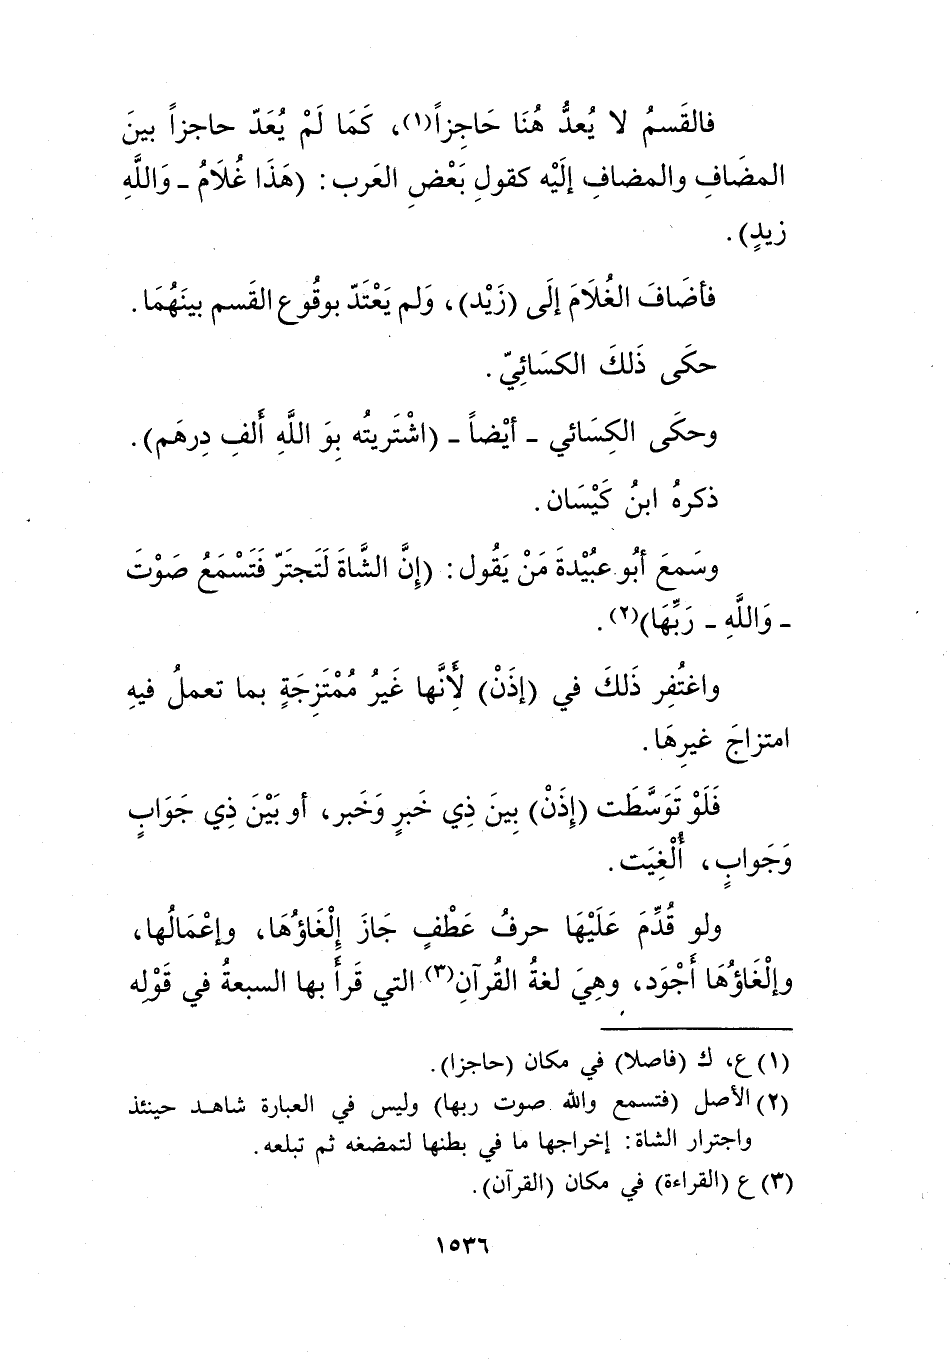 فالقَسمُ لا يُعدُّ هُنَا حَاجِزاً(١)، كَمَا لَمْ يُعَدّ حاجزاً بينَ
المضَافِ والمضافِ إلَيْه كقولِ بَعْضِ العَرب: (هَذَا غُلَامُ ـ وَاللَّهِ
زيدٍ).
فأضَافَ الغُلَامَ إلَى (زَيْد)، وَلم يَعْتَدّ بوقُوع القَسم بينَهُمَا.
حكَى ذَلكَ الكسَائِيّ.
وحكَى الكِسَائي ـ أيْضاً ـ (اشْتَريتُه بِوَ اللَّهِ أَلفِ دِرهَم).
ذكرهُ ابنُ كَيْسَان.
وسَمعَ أبُو عبُيْدةَ مَنْ يَقُول: (إنَّ الشَّاةَ لَتَجتَرّ فَتَسْمَعُ صَوْتَ
ـ وَاللَّهِ ـ رَبِّهَا)(٢).
واغتُفِر ذَلكَ في (إذَنْ) لأَنَّها غَيرُ مُمْتَزِجَةٍ بما تعملُ فيهِ
امتزاجَ غيرِهَا.
فَلَوْ تَوَسَّطَت (إذَنْ) بينَ ذِي خَبرٍ وَخَبر، أو بَيْنَ ذِي جَوَابٍ
وَجَوابٍ، أُلْغِيَت.
ولو قُدِّمَ عَلَيْهَا حرفُ عَطْفٍ جَازَ إِلْغَاؤُهَا، وإعْمَالُها،
وإلْغَاؤُهَا أَجْوَد، وهِيَ لغةُ القُرآنِ(٣) التي قَرأَ بها السبعةُ في قَوْلِه
(١) ع، ك (فاصلا) في مكان (حاجزا).
(٢) الأصل (فتسمع والله صوت ربها) وليس في العبارة شاهد حينئذ
واجترار الشاة: إخراجها ما في بطنها لتمضغه ثم تبلعه.
(٣) ع (القراءة) في مكان (القرآن).
١٥٣٦